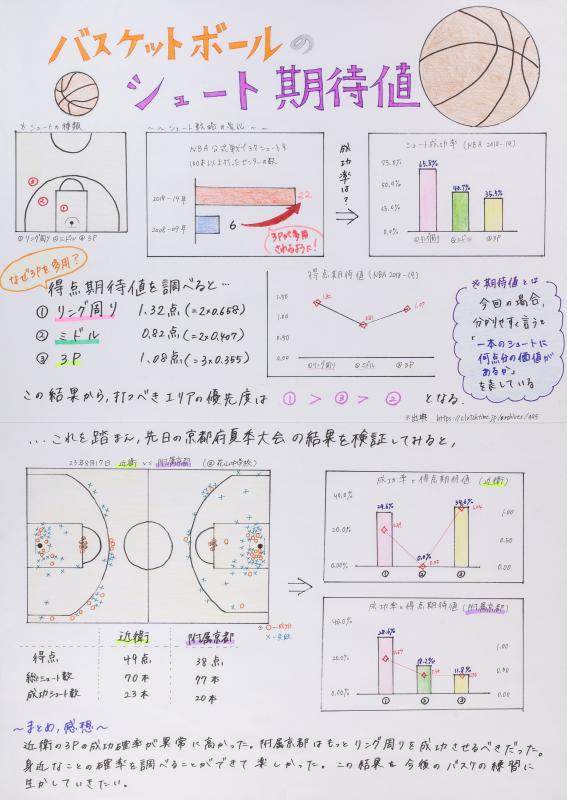 バスケットボールの
シュート期待値
※シュートの種類
③
②
①
①リング周り ②ミドル ③3P
～シュート戦略の変化～
NBA公式戦で3Pシュートを
100本以上打ったセンターの数
2018-19年
22
2008-09年
6
3Pが多用
されるように!
成功率は?
シュート成功率 (NBA 2018-19)
75.0%
65.8%
40.7%
35.5%
45.0%
0.00%
①リング周り ②ミドル ③3P
なぜ3Pを多用?
得点期待値を調べると…
① リング周り 1.32点(=2×0.658)
② ミドル 0.82点(=2×0.407)
③ 3P 1.08点(=3×0.355)
得点期待値 (NBA 2018-19)
1.50
1.00
0.50
0.00
①リング周り ②ミドル ③3P
※期待値とは
今回の場合,
分かりやすく言うと
「一本のシュートに
何点分の価値が
あるか」
を表している
この結果から,打つべきエリアの優先度は ① > ③ > ② となる.
…これを踏まえ,先日の京都府夏季大会の結果を検証してみると,
23年8月17日 近衛 vs 附属京都 (@花山中学校)
※ ○…成功
×…失敗
成功率と得点期待値 (近衛)
40.0%
29.6%
0.0%
34.6%
20.0%
0.00%
1.00
0.50
0.00
① ② ③
成功率と得点期待値 (附属京都)
40.0%
28.6%
18.2%
11.8%
20.0%
0.00%
1.00
0.50
0.00
① ② ③
近衛 附属京都
得点 49点 38点
総シュート数 70本 77本
成功シュート数 23本 20本
～まとめ,感想～
近衛の3Pの成功確率が異常に高かった。附属京都はもっとリング周りを成功させるべきだった。
身近なことの確率を調べることができて楽しかった。この結果を今後のバスケの練習に
生かしていきたい。